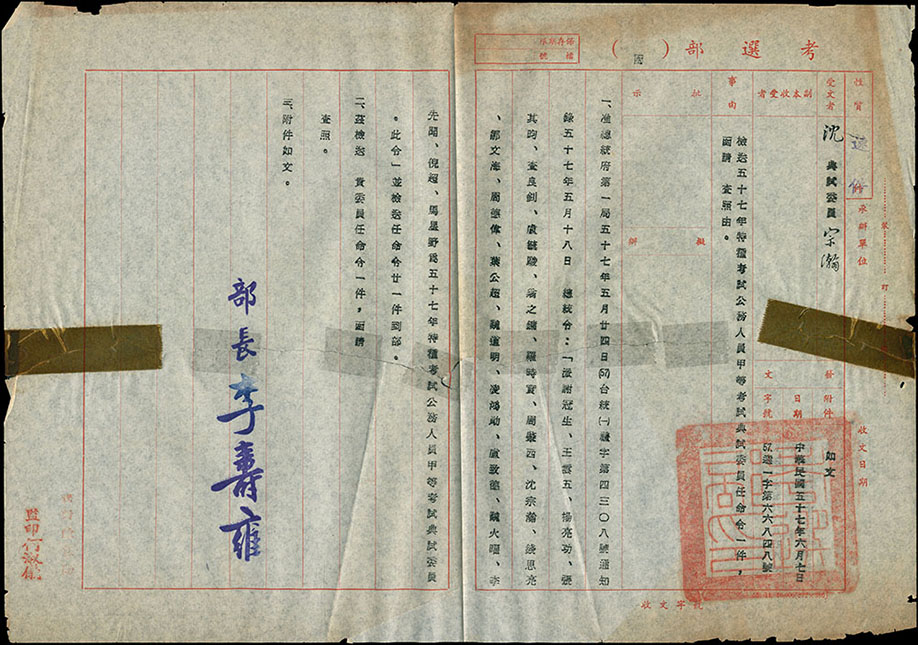 考選部（函）
保存期限
檔號
性質
速件
受文者
沈 典試委員 宗瀚
副本收受者
承辦單位
事由
檢送五十七年特種考試公務人員甲等考試典試委員任命令一件，
函請 查照由。
批示
擬辦
發文
附件
如文
日期
中華民國五十七年六月七日
字號
57選一字第六六八四八號
收文日期
收文字號
一、准總統府第一局五十七年五月廿四日(57)台統(一)機字第四三〇八號通知
錄五十七年五月十八日 總統令：「派謝冠生、王雲五、楊亮功、張
其昀、查良釗、盧毓駿、翁之鏞、羅時實、周鯨西、沈宗瀚、錢思亮
、鄧文海、周德偉、葉公超、魏道明、凌鴻勛、盧致德、魏火曜、李
先聞、倪超、馬星野為五十七年特種考試公務人員甲等考試典試委員
。此令」並檢送任命令廿一件到部。
二、茲檢送 貴委員任命令一件，函請
查照。
三、附件如文。
部長 李壽雍